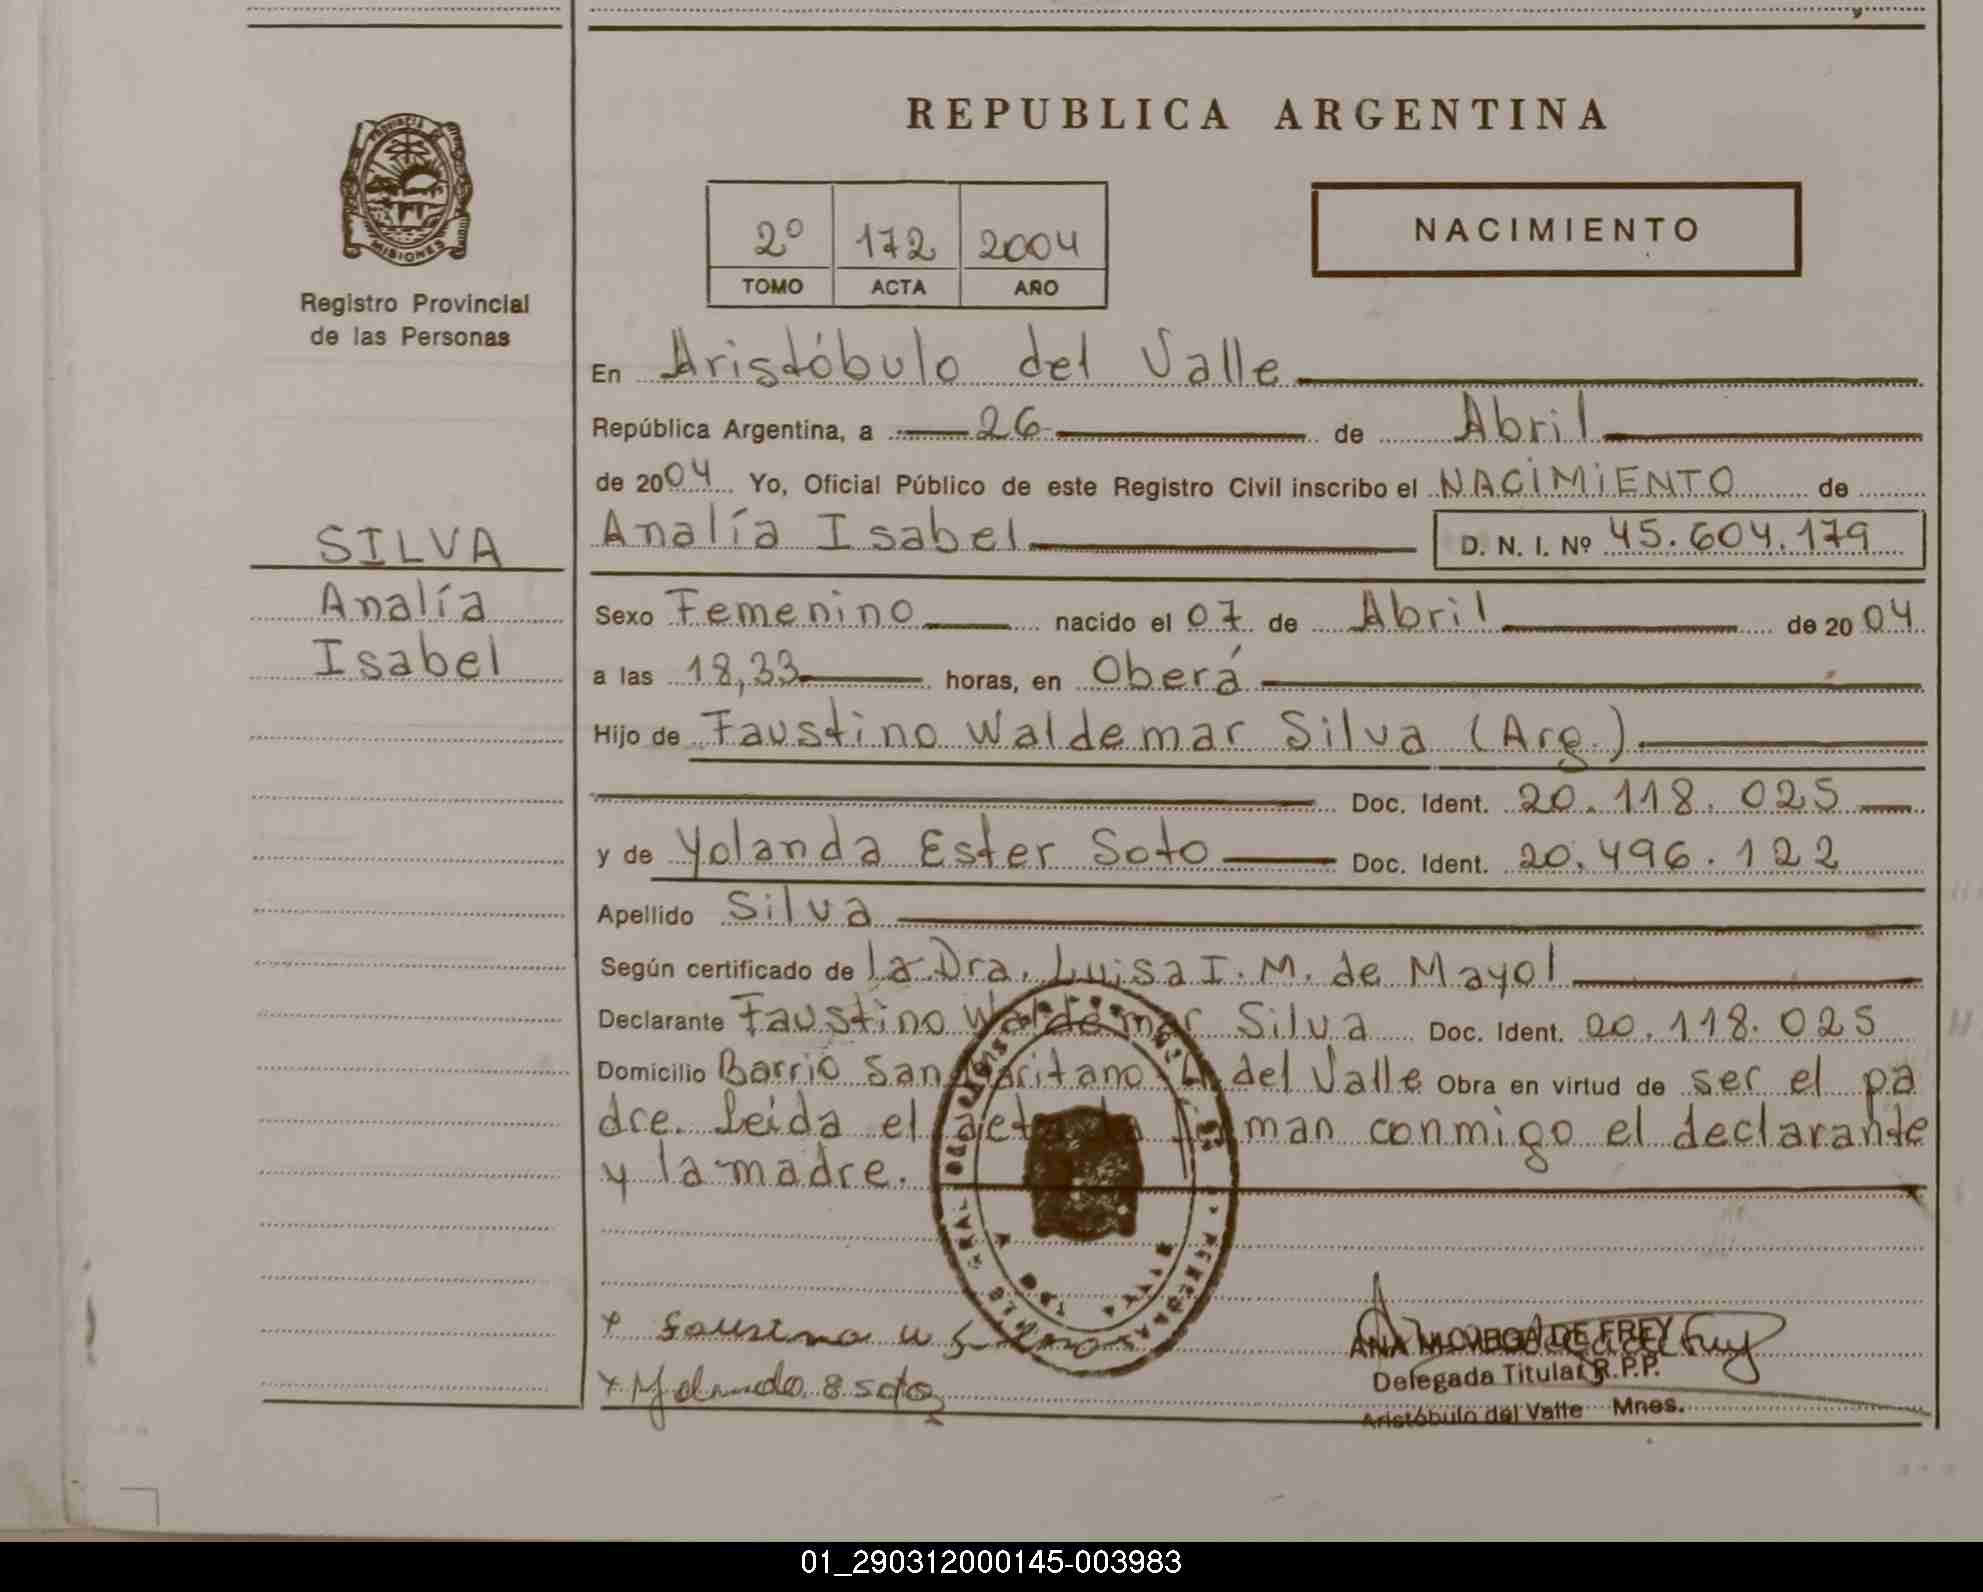 REPUBLICA ARGENTINA
PROVINCIA DE
MISIONES
Registro Provincial
de las Personas
2º 172 2004
TOMO ACTA AÑO
NACIMIENTO
En Aristóbulo del Valle
República Argentina, a 26 de Abril
de 2004 Yo, Oficial Público de este Registro Civil inscribo el NACIMIENTO de
SILVA
Analía
Isabel
Analía Isabel D. N. I. Nº 45.604.179
Sexo Femenino nacido el 07 de Abril de 2004
a las 18,33 horas, en Oberá
Hijo de Faustino Waldemar Silva (Arg.)
Doc. Ident. 20.118.025
y de Yolanda Ester Soto Doc. Ident. 20.496.122
Apellido Silva
Según certificado de la Dra. Luisa I. M. de Mayol
Declarante Faustino Waldemar Silva Doc. Ident. 20.118.025
Domicilio Barrio San A. del Valle Obra en virtud de ser el pa
dre. Leída el acta la firman conmigo el declarante
y la madre.
ANA DE FREY
Delegada Titular R.P.P.
Aristóbulo del Valle Mnes.
01_290312000145-003983